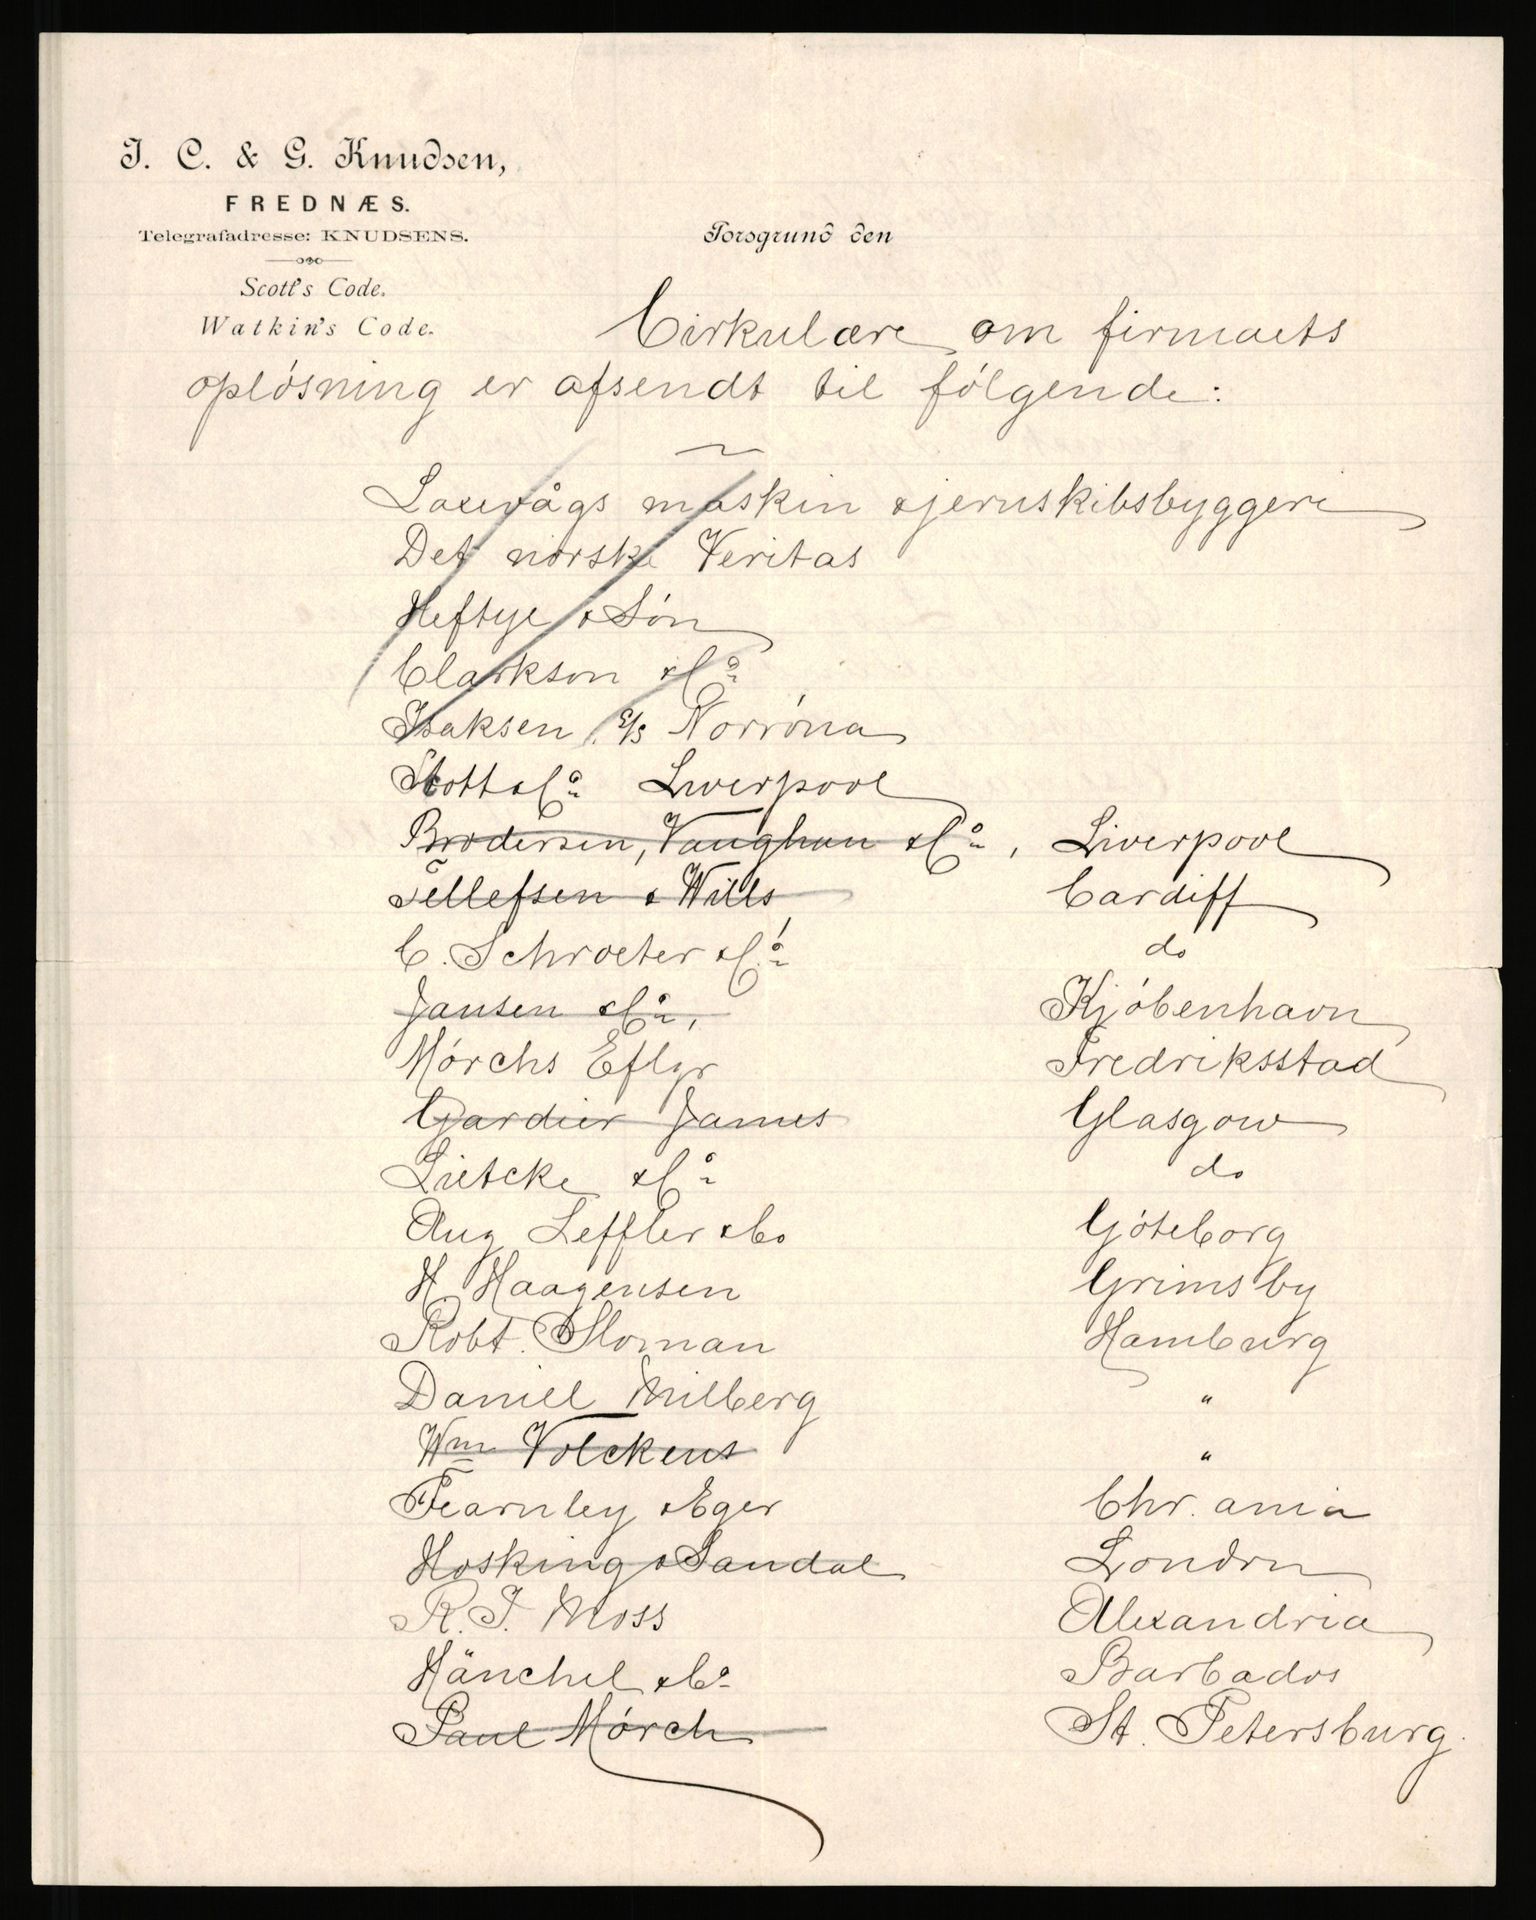 J. C. & G. Knudsen,
FREDNÆS.
Telegrafadresse: KNUDSENS.
Scott's Code.
Watkin's Code.
Porsgrund den
Cirkulære om firmaets
opløsning er afsendt til følgende:
Laxevågs maskin & jernskibsbyggeri
Det norske Veritas
Heftye & Søn
Clarkson & Co
Isaksen, E/S Norrøna
Stott & Co Liverpool
Brodersen, Vaughan & Co, Liverpool
Tellefsen & Wills Cardiff
C. Schroeter & Co do
Jansen & Co, Kjøbenhavn
Mørchs Eflgr Fredriksstad
Gardier James Glasgow
Lietcke & Co do
Aug Leffler & Co Göteborg
H Haagensen Grimsby
Robt. Sloman Hamburg
Daniel Milberg "
Wm Volckens "
Fearnley & Eger Chr.ania
Hosking & Sandal London
R. J. Moss Alexandria
Hänchel & Co Barbados
Paul Mørch St. Petersburg.